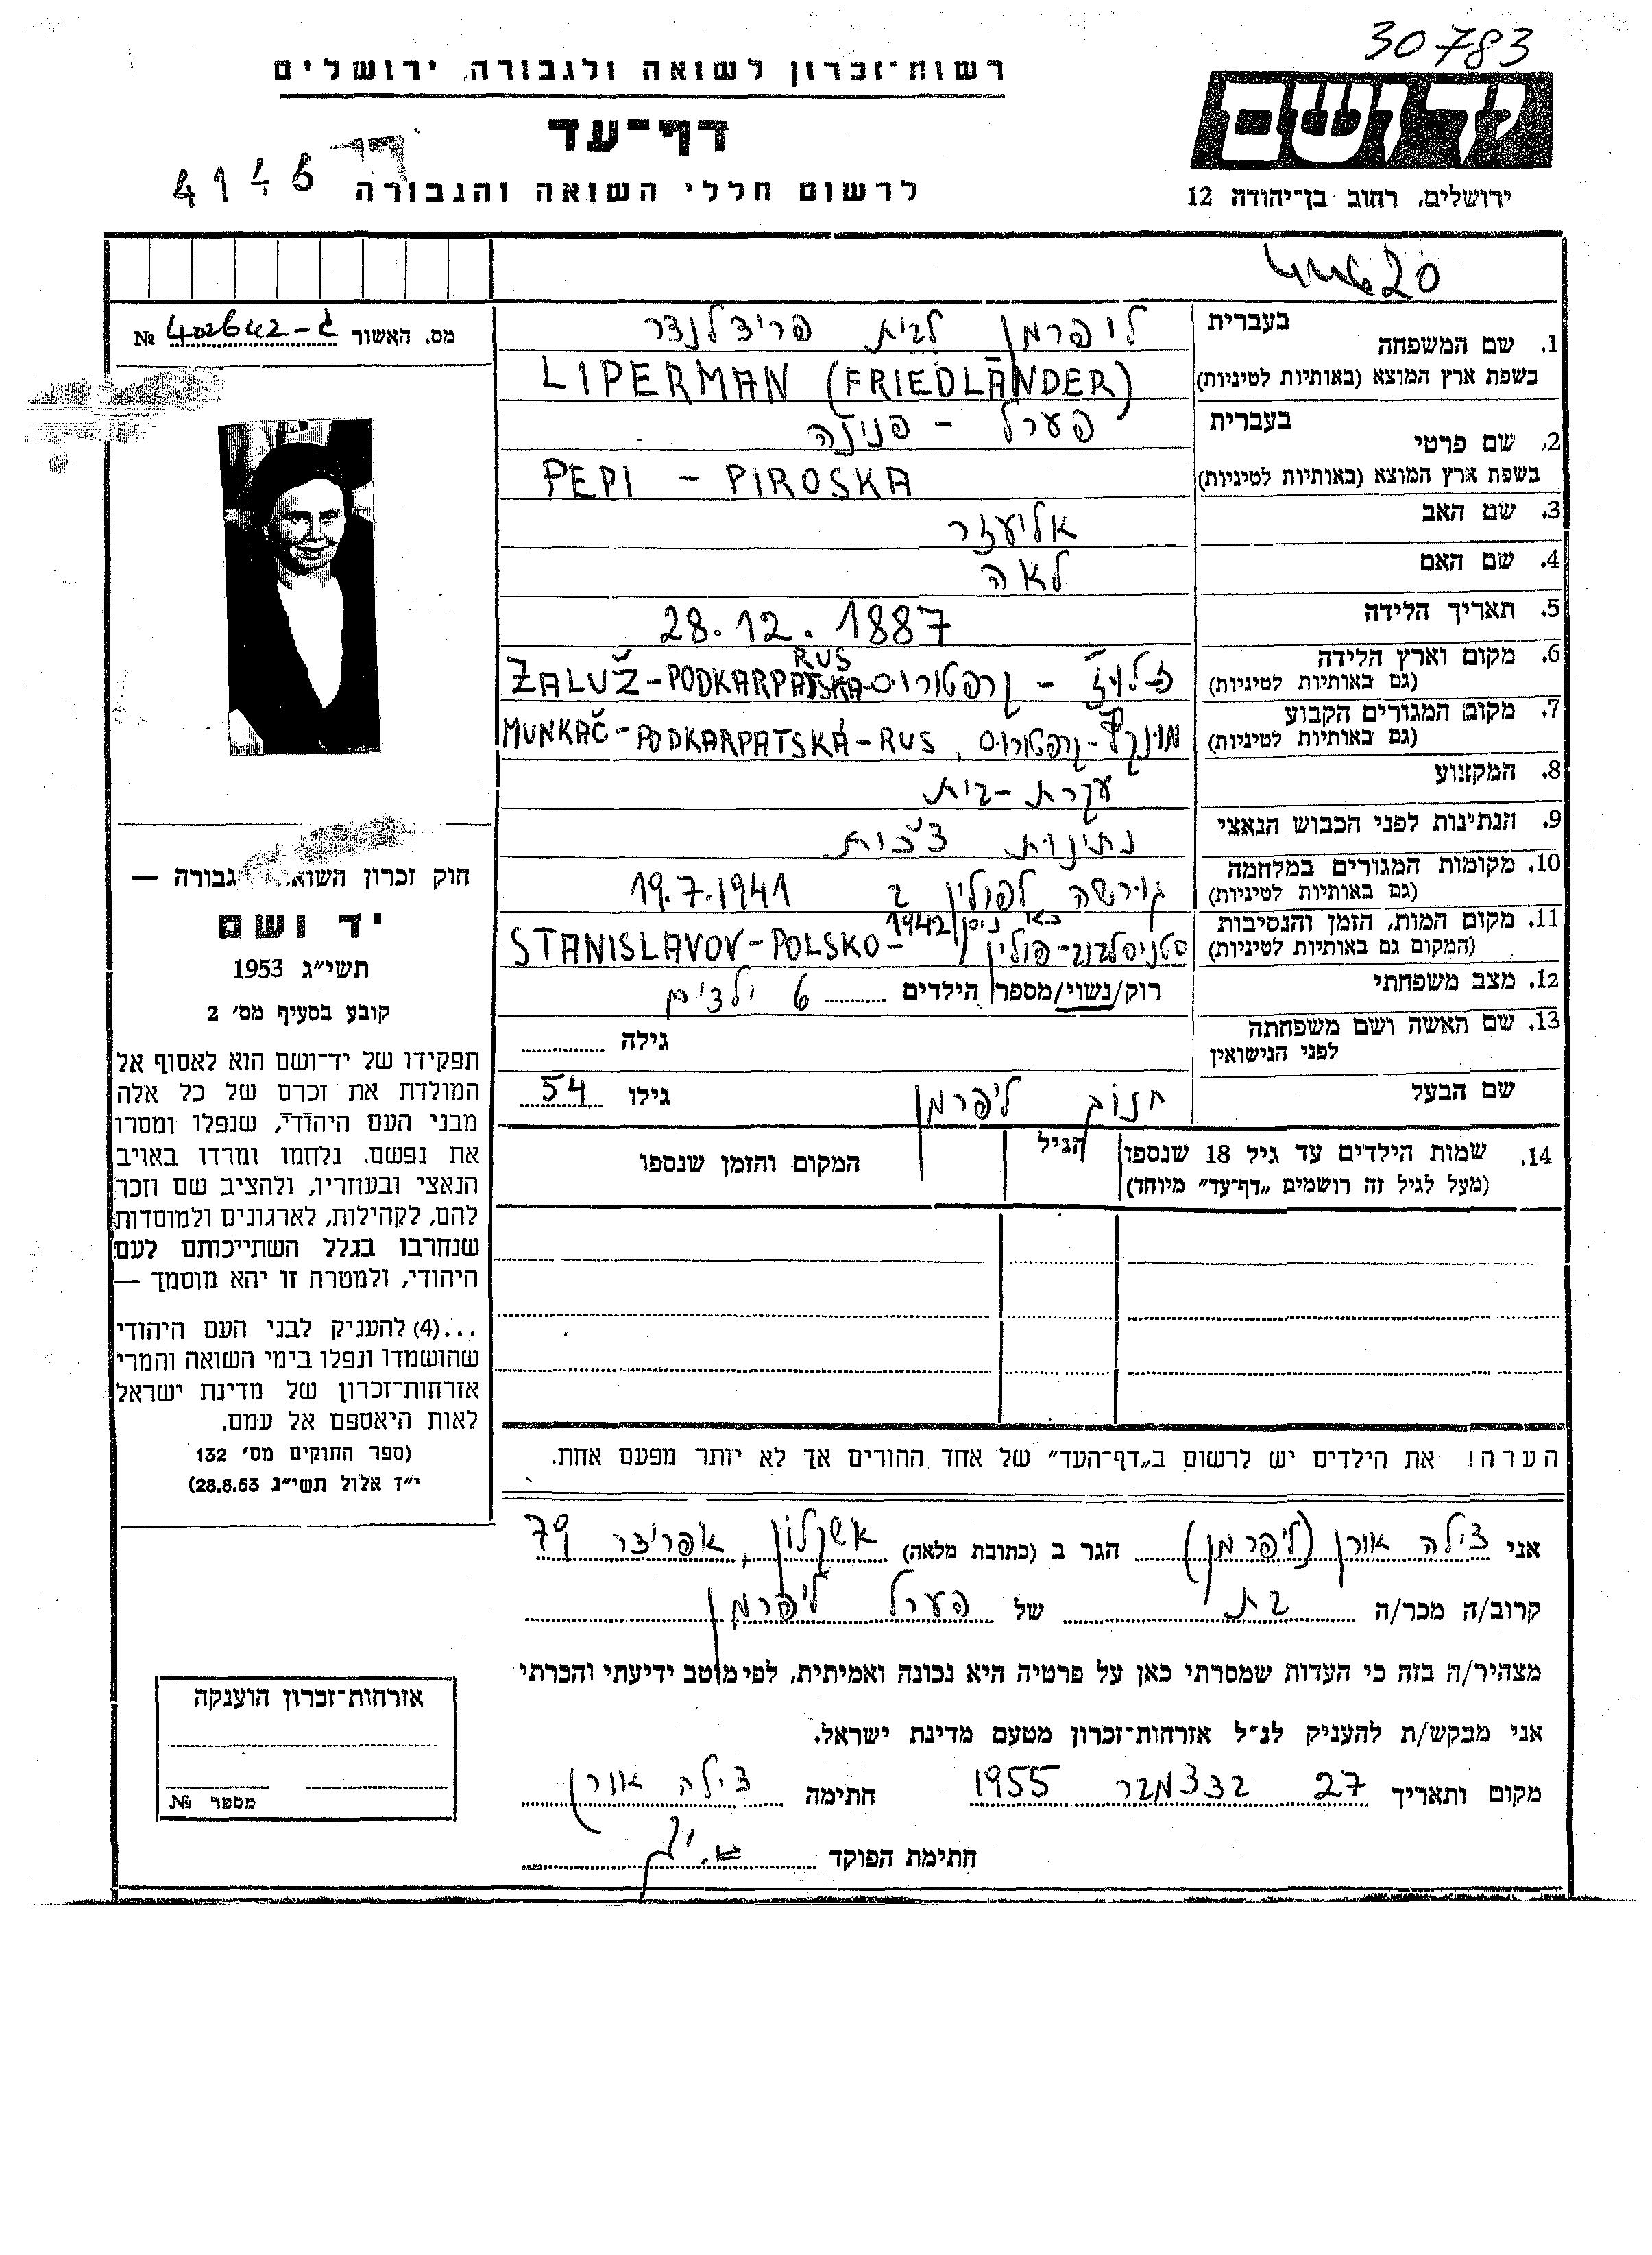 30783
רשות־זכרון לשואה ולגבורה, ירושלים
יד ושם
דף־עד
לרשום חללי השואה והגבורה
4146
ירושלים, רחוב בן־יהודה 12
מס. האשור ג-402642 №
1. שם המשפחה
בעברית
ליפרמן לבית פרידלנדר
בשפת ארץ המוצא (באותיות לטיניות)
LIPERMAN (FRIEDLÄNDER)
2. שם פרטי
בעברית
פערל - פנינה
בשפת ארץ המוצא (באותיות לטיניות)
PEPI - PIROSKA
3. שם האב
אליעזר
4. שם האם
לאה
5. תאריך הלידה
28.12.1887
6. מקום וארץ הלידה
(גם באותיות לטיניות)
קרפטורוס - ŽALUŽ-PODKARPATSKA RUS
7. מקום המגורים הקבוע
(גם באותיות לטיניות)
קרפטורוס, MUNKAČ-PODKARPATSKÁ-RUS
8. המקצוע
עקרת-בית
9. הנתינות לפני הכבוש הנאצי
נתינות צ'כית
10. מקומות המגורים במלחמה
(גם באותיות לטיניות)
גורשה לפולין ב 19.7.1941
11. מקום המות, הזמן והנסיבות
(המקום גם באותיות לטיניות)
סטניסלבוב-פולין ניסן 1942 STANISLAVOV-POLSKO-
12. מצב משפחתי
רוק/נשוי/מספר הילדים 6 ילדים
13. שם האשה ושם משפחתה
לפני הנישואין
גילה
שם הבעל
חנוך ליפרמן
גילו 54
14. שמות הילדים עד גיל 18 שנספו
(מעל לגיל זה רושמים „דף־עד" מיוחד)
הגיל
המקום והזמן שנספו
הערה! את הילדים יש לרשום ב„דף־העד" של אחד ההורים אך לא יותר מפעם אחת.
חוק זכרון השואה גבורה —
יד ושם
תשי״ג 1953
קובע בסעיף מס׳ 2
תפקידו של יד־ושם הוא לאסוף אל
המולדת את זכרם של כל אלה
מבני העם היהודי, שנפלו ומסרו
את נפשם, נלחמו ומרדו באויב
הנאצי ובעוזריו, ולהציב שם וזכר
להם, לקהילות, לארגונים ולמוסדות
שנחרבו בגלל השתייכותם לעם
היהודי, ולמטרה זו יהא מוסמך —
...(4) להעניק לבני העם היהודי
שהושמדו ונפלו בימי השואה והמרי
אזרחות־זכרון של מדינת ישראל
לאות היאספם אל עמם.
(ספר החוקים מס׳ 132
י״ז אלול תשי״ג 28.8.53)
אני צילה אורן (ליפרמן) הגר ב (כתובת מלאה) אשקלון, אפרידר 79
קרוב/ה מכר/ה בת של פערל ליפרמן
מצהיר/ה בזה כי העדות שמסרתי כאן על פרטיה היא נכונה ואמיתית, לפי מוטב ידיעתי והכרתי
אני מבקש/ת להעניק לנ״ל אזרחות־זכרון מטעם מדינת ישראל.
מקום ותאריך 27 בדצמבר 1955 חתימה צילה אורן
חתימת הפוקד
אזרחות־זכרון הוענקה
מספר №